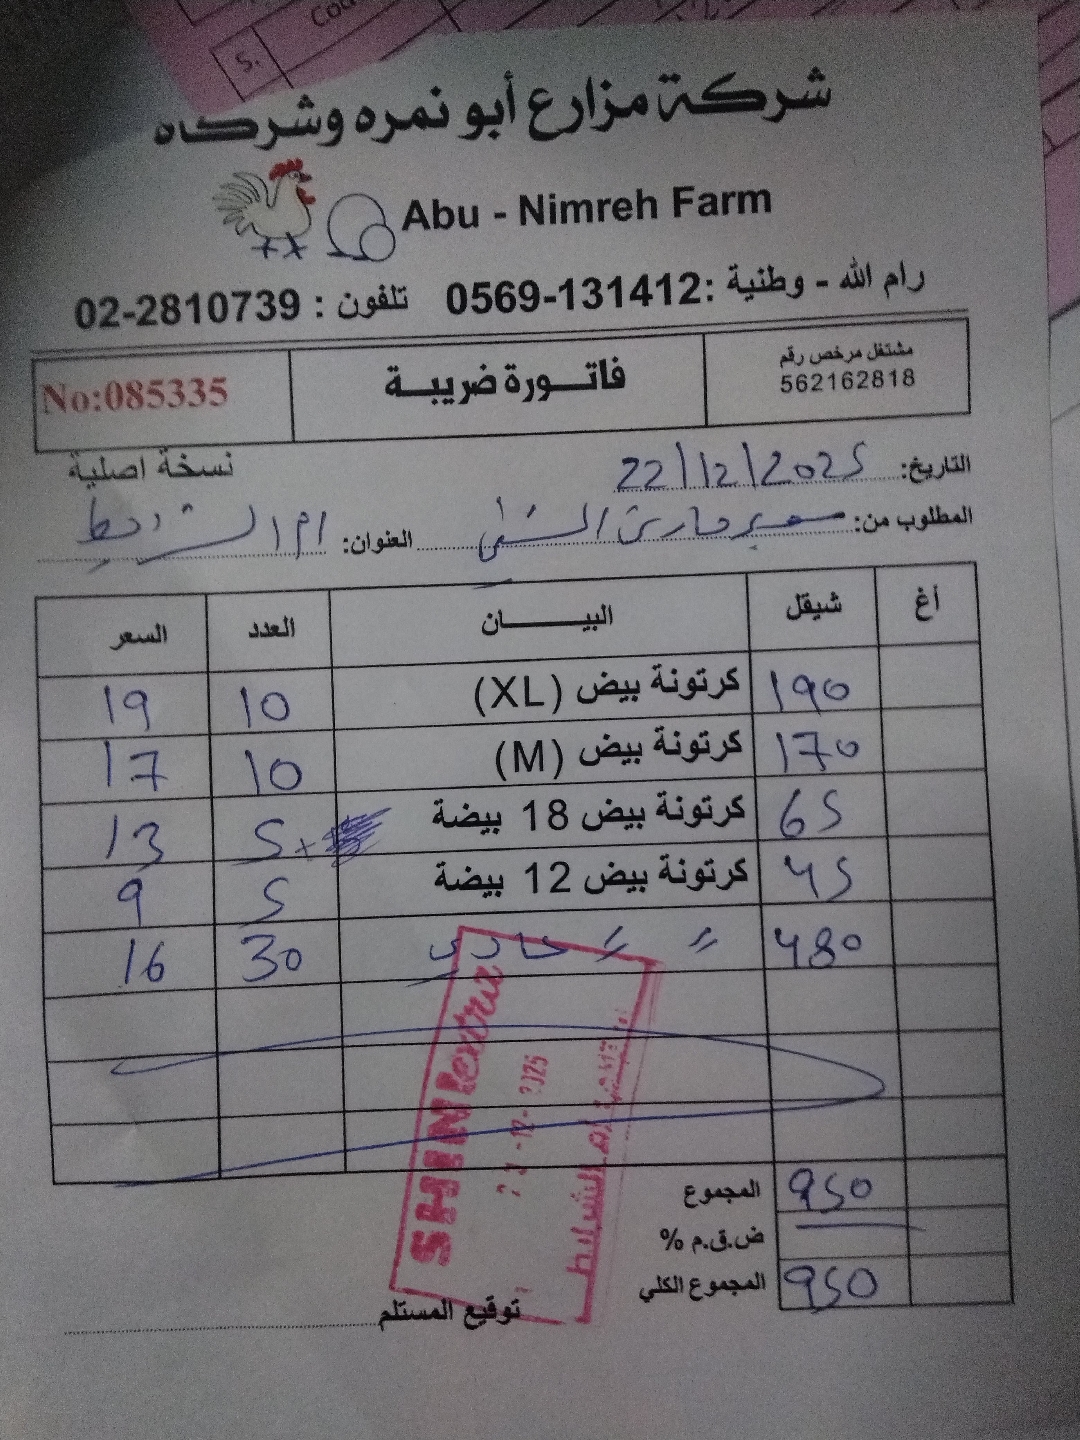 5.
شركة مزارع أبو نمره وشركاه
Abu - Nimreh Farm
رام الله - وطنية :0569-131412 تلفون : 02-2810739
مشتغل مرخص رقم
562162818
فاتورة ضريبة
No:085335
نسخة اصلية
التاريخ: 22/12/2025
المطلوب من: سوبر ماركت العنوان: ام الشرايط
أغ شيقل البيان العدد السعر
190 كرتونة بيض (XL) 10 19
170 كرتونة بيض (M) 10 17
65 كرتونة بيض 18 بيضة 5 13
45 كرتونة بيض 12 بيضة 5 9
480 〃 〃 عادي 30 16
SHINI extra
-12-2025
ام الشرايط
المجموع 950
ض.ق.م %
المجموع الكلي 950
توقيع المستلم